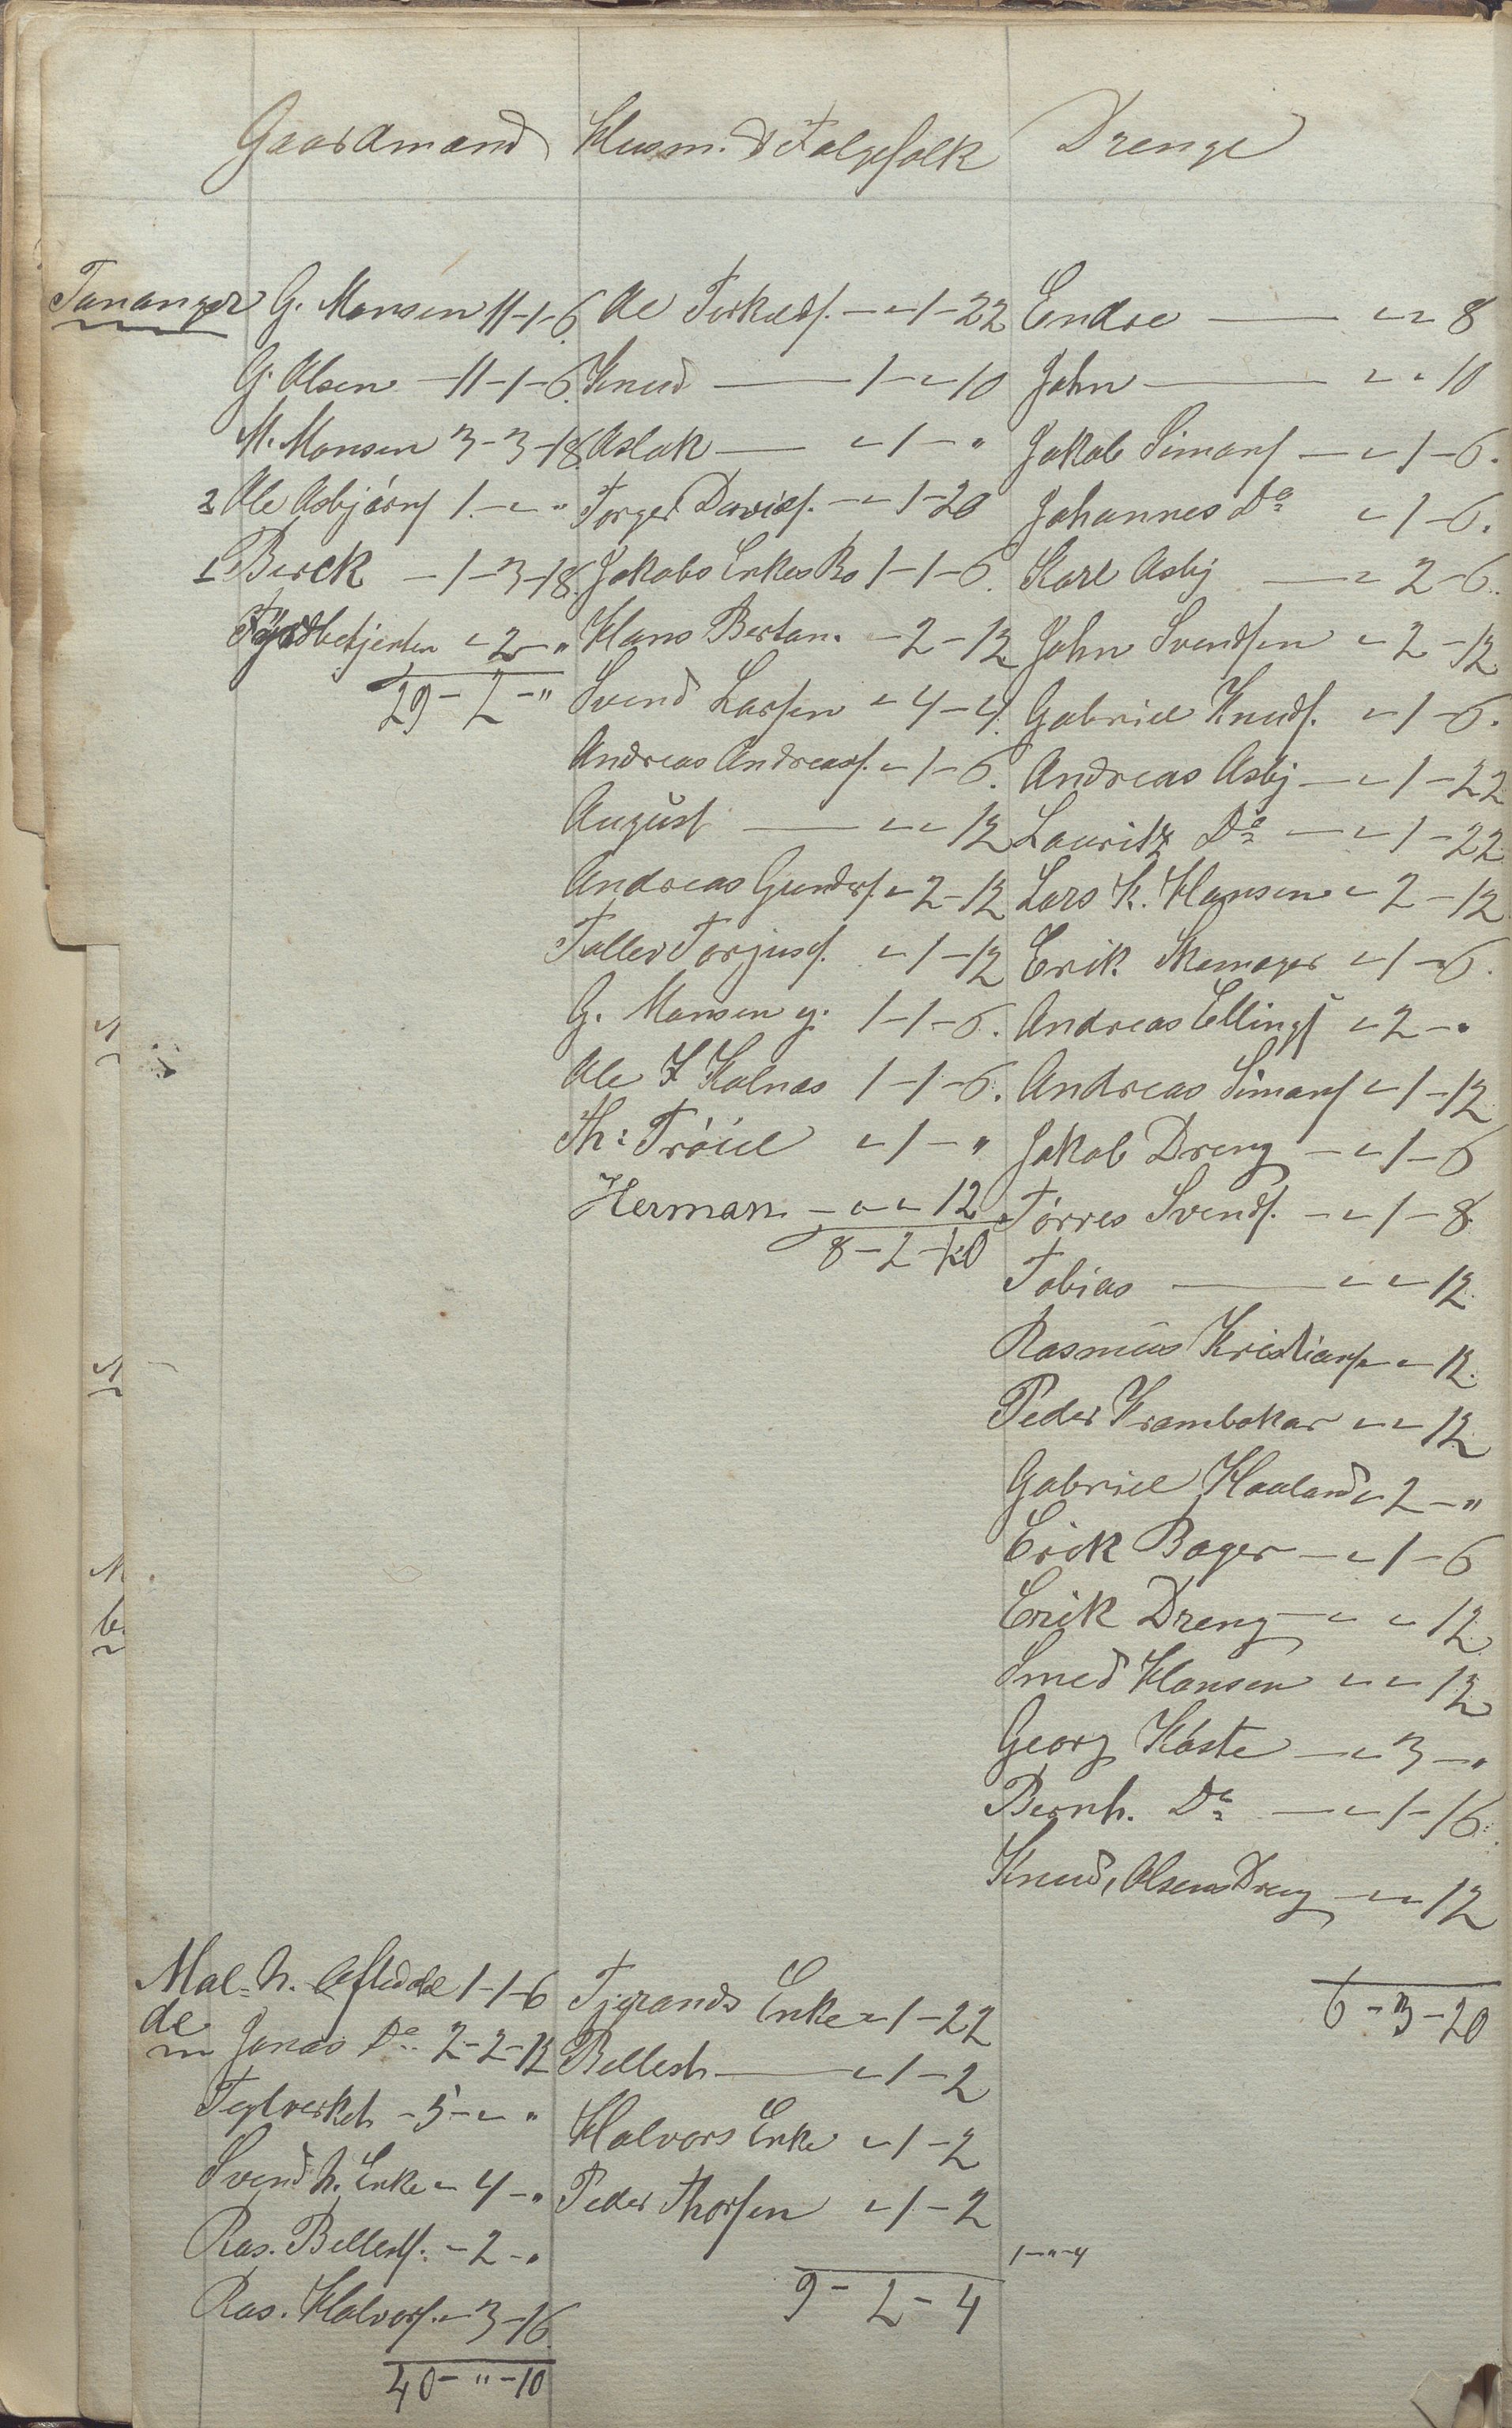 Gaardmænd Husm. & Følgefolk Drenge
Tananger G. Monsen 11-1-6.
G. Olsen - 11-1-6.
M. Monsen 3-3-18.
2 Ole Asbjörns 1 - " - "
1 Berck - 1-3-18.
Fyrbetjenten " - 2 - "
29 - 2 - "
Ole Torkelds. - " - 1 - 22
Knud - 1 - " - 10
Aslak - " - 1 - "
Torger Davids. - " - 1 - 20
Jakobs Enkes 1-1-6.
Hans Bertan. - 2 - 12
Svend Larsen " 4 - 4.
Andreas Andreass. " - 1 - 6.
August - " - " 12
Andreas Gunders. " 2 - 12
Tollev Torjus. " - 1 - 12
G. Monsen y. 1-1-6.
Ole Kolnæs 1-1-6.
Th: Tröiel " - 1 - "
Herman - " - " 12
8 - 2 - 20
Endre - " " 8
John - " " 10
Jakob Simons - " 1 - 6.
Johannes Do " 1 - 6.
Karl Asbj - " 2 - 6.
John Svendsen " 2 - 12
Gabriel Knuds. " 1 - 6.
Andreas Asbj - " 1 - 22
Lauritz Do - " 1 - 22
Lars K. Hansen " 2 - 12
Erik Skemager " 1 - 6.
Andreas Ellings " 2 - "
Andreas Simons " 1 - 12
Jakob Dreng - " 1 - 6
Törres Svends. - " 1 - 8.
Tobias - " " 12.
Rasmus Kristians " " 12.
Peder Krambokar " " 12
Gabriel Haaland " 2 - "
Erik Bager - " 1 - 6
Erik Dreng - " " 12
Smed Hansen " " 12
Georg Köste - " 3 - "
Bernh. Do - " 1 - 16.
Knud, Olsens Dreng - " " 12
6 - 3 - 20
Malde
Jonas Do 2-2-12
Teglverket - 5 - " "
Svend h. Enke " 4 - "
Ras. Bellests. - 2 - "
Ras. Halvors. " 3 - 16.
40 - " - 10
Tjerands Enke " 1 - 22
Bellest - " 1 - 2
Halvors Enke " 1 - 2
Peder Thorsen " 1 - 2
1 - " - 4
9 - 2 - 4